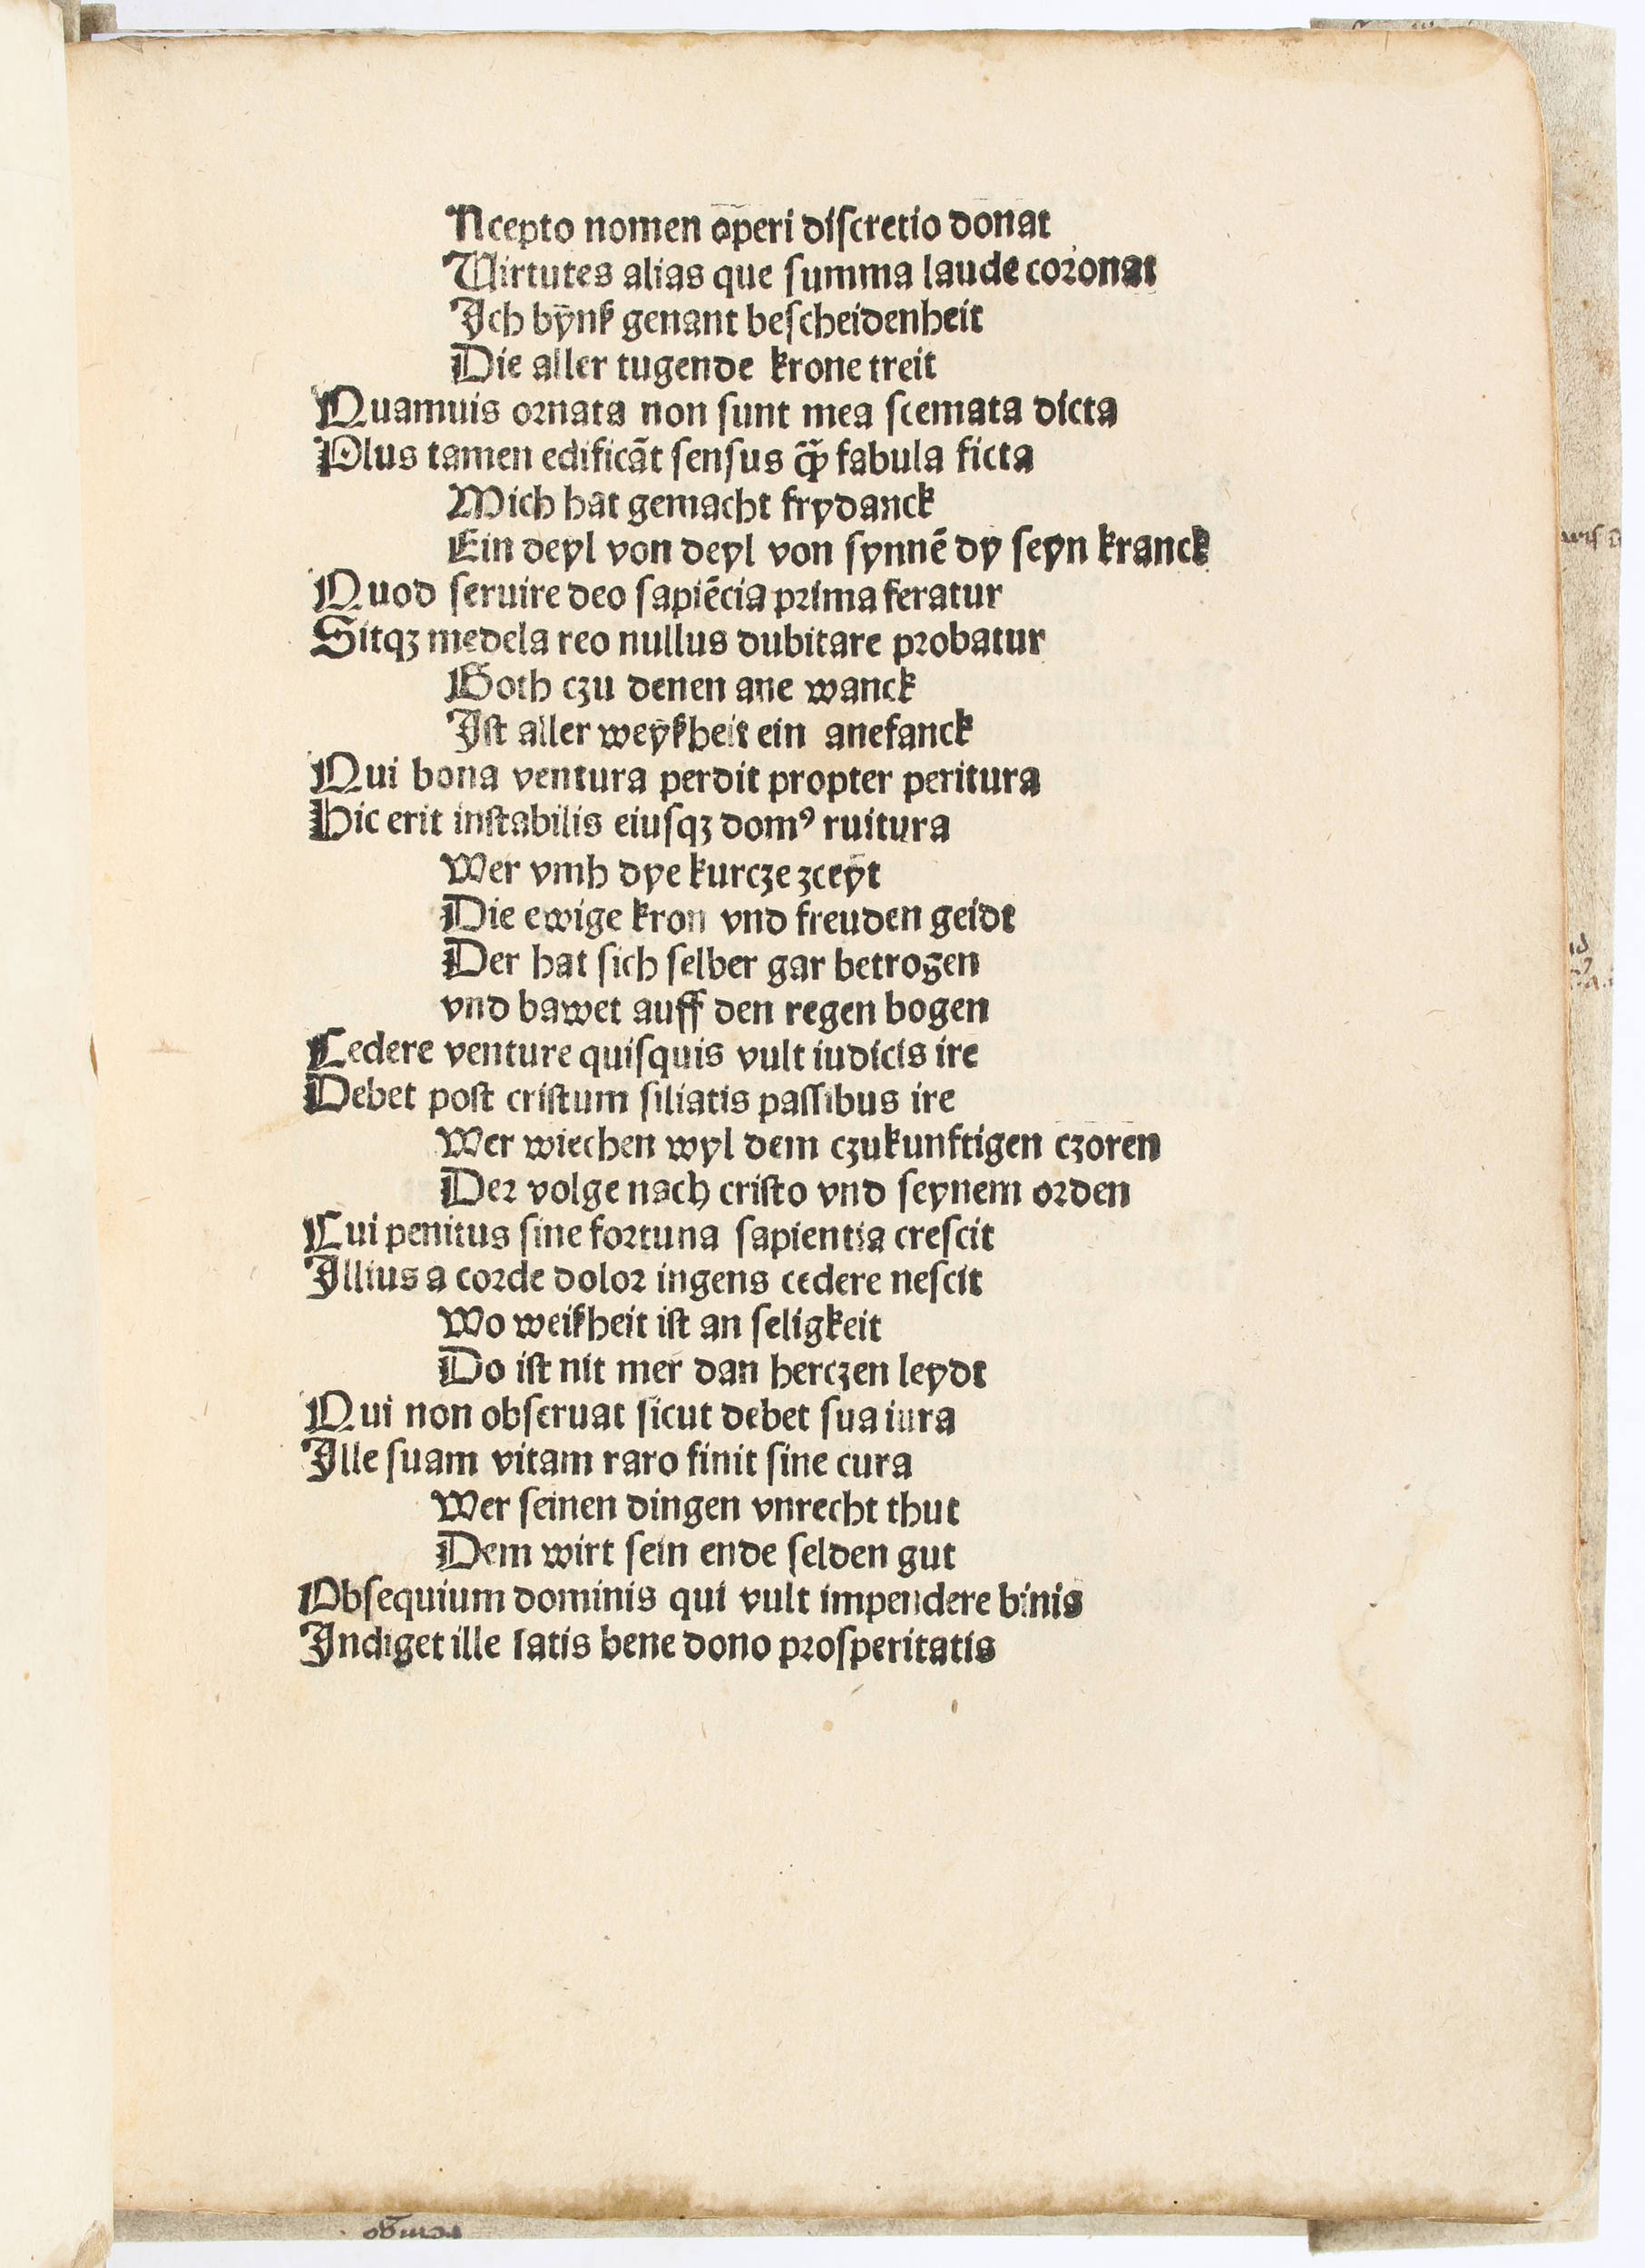 Ncepto nomen operi discretio donat
Virtutes alias que summa laude coronat
Ich bynß genant bescheidenheit
Die aller tugende krone treit
Quamuis ornata non sunt mea scemata dicta
Plus tamen edificãt sensus qꝫ̃ fabula ficta
Mich hat gemacht frydanck
Ein deyl von deyl von synnẽ dy seyn kranck
Quod seruire deo sapiẽcia prima feratur
Sitqꝫ medela reo nullus dubitare probatur
Goth czu denen ane wanck
Ist aller weyßheit ein anefanck
Qui bona ventura perdit propter peritura
Hic erit instabilis eiusqꝫ domꝰ ruitura
Wer vmb dye kurcze zceyt
Die ewige kron vnd freuden geidt
Der hat sich selber gar betrogen
vnd bawet auff den regen bogen
Cedere venture quisquis vult iudicis ire
Debet post cristum siliatis passibus ire
Wer wiechen wyl dem czukunftigen czoren
Der volge nach cristo vnd seynem orden
Cui penitus sine fortuna sapientia crescit
Illius a corde dolor ingens cedere nescit
Wo weißheit ist an seligkeit
Do ist nit mer dan herczen leydt
Qui non obseruat sicut debet sua iura
Ille suam vitam raro finit sine cura
Wer seinen dingen vnrecht thut
Dem wirt sein ende selden gut
Obsequium dominis qui vult impendere binis
Indiget ille satis bene dono prosperitatis